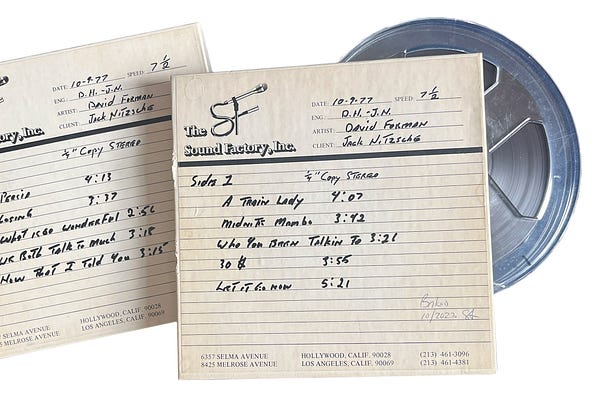 ory, Inc.
DATE: 10-9-77 SPEED: 7½
ENG: D.H.-J.N.
ARTIST: David Forman
CLIENT: Jack Nitzsche
¼" Copy STEREO
PERSIA 4:13
OSING 3:37
WHAT IS SO WONDERFUL 2:56
WE BOTH TALK TO MUCH 3:18
NOW THAT I TOLD YOU 3:15
SELMA AVENUE HOLLYWOOD, CALIF. 90028
MELROSE AVENUE LOS ANGELES, CALIF. 90069
The SF
Sound Factory, Inc.
DATE: 10-9-77 SPEED: 7½
ENG: D.H.-J.N.
ARTIST: DAVID FORMAN
CLIENT: JACK NITZSCHE
Side 1 ¼" Copy STEREO
A TRAIN LADY 4:07
MIDNITE MAMBO 3:42
WHO YOU BEEN TALKIN TO 3:21
30 $ 3:55
LET IT GO NOW 5:21
10/2022
6357 SELMA AVENUE HOLLYWOOD, CALIF. 90028 (213) 461-3096
8425 MELROSE AVENUE LOS ANGELES, CALIF. 90069 (213) 461-4381